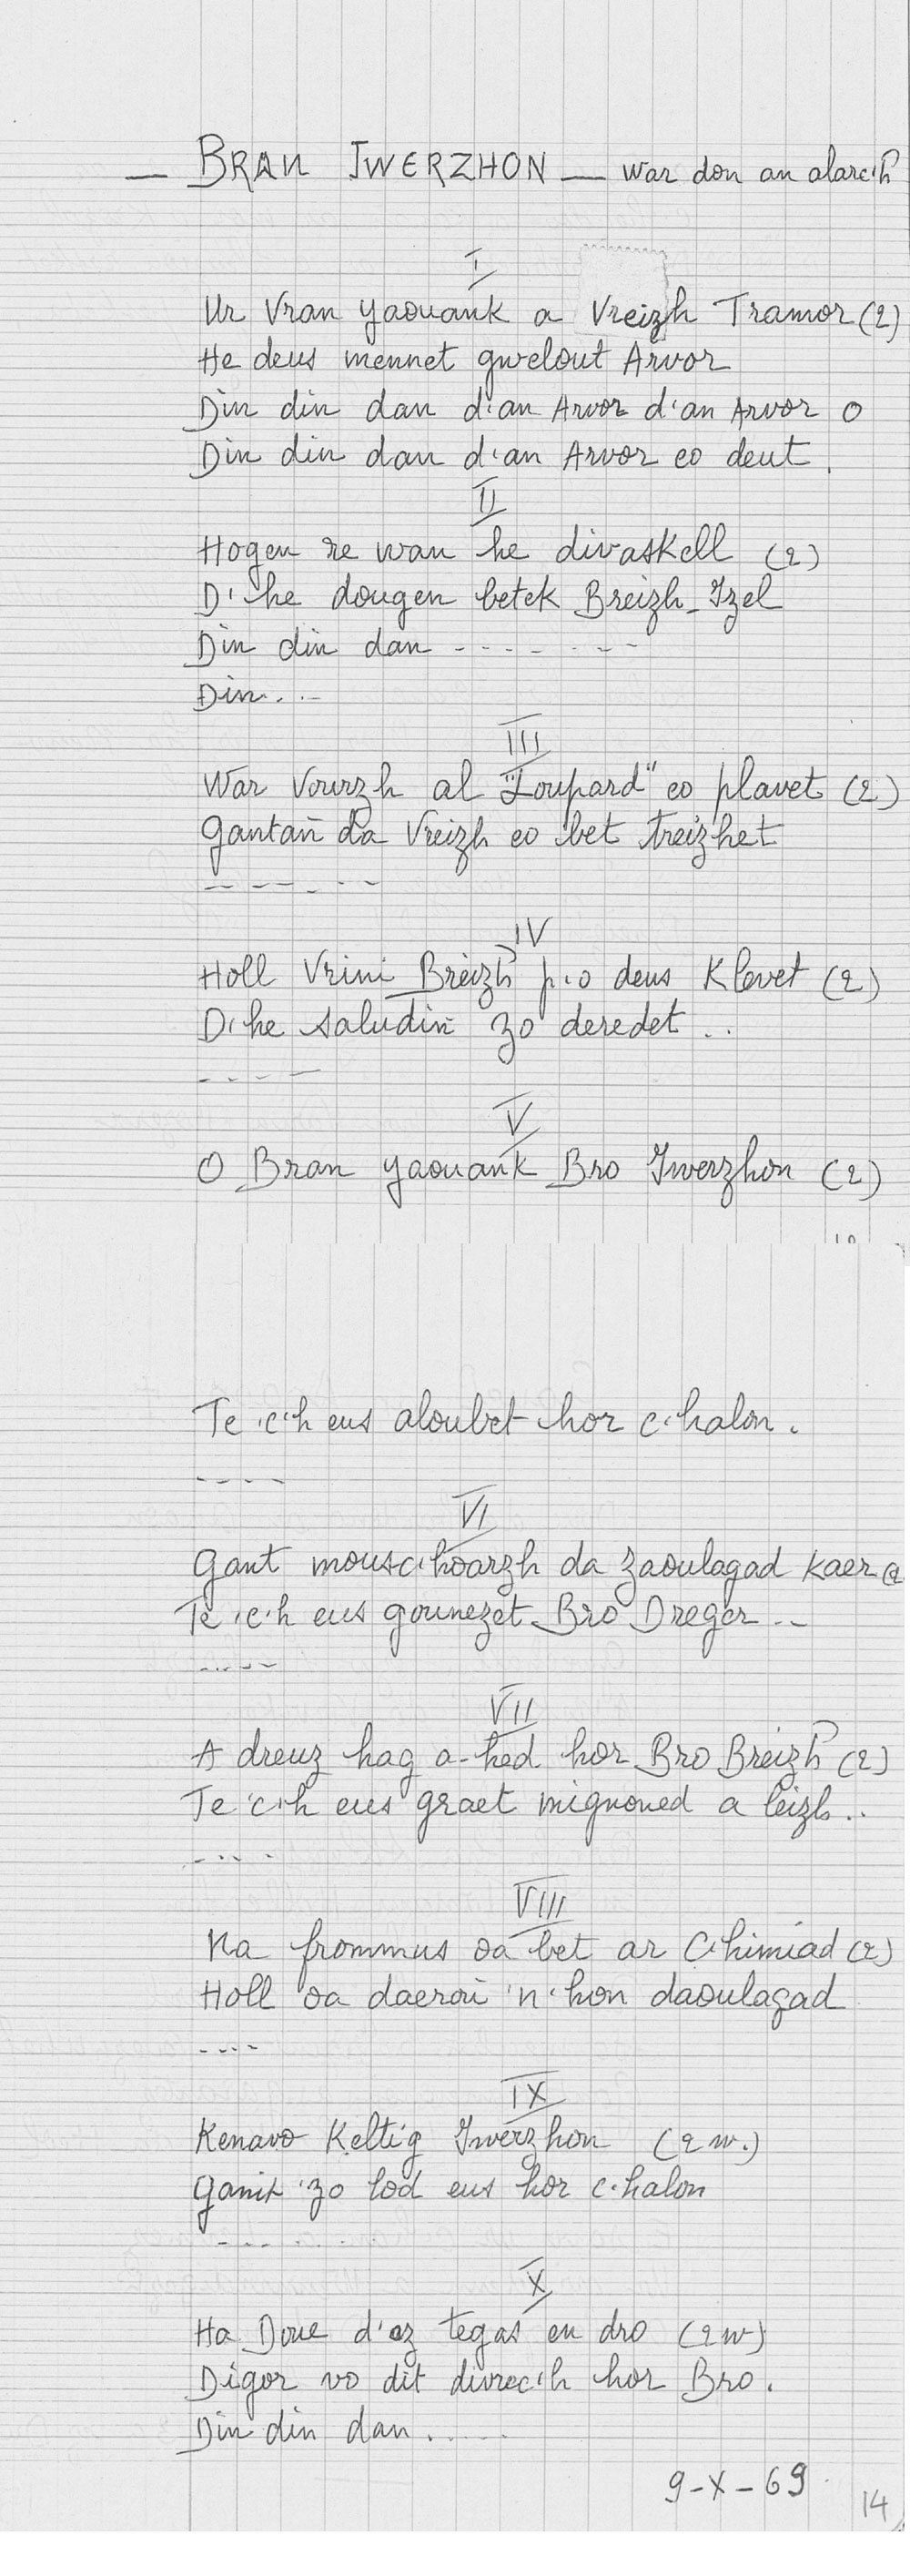 — BRAN IWERZHON — war don an alarc'h
I
Ur Vran yaouank a Vreizh Tramor (2)
He deus mennet gwelout Arvor
Din din dan d'an Arvor d'an Arvor o
Din din dan d'an Arvor eo deut.
II
Hogen re wan he divaskell (2)
D'he dougen betek Breizh-Izel
Din din dan - - - - - - -
Din...
III
War Vourzh al "Loupard" eo plavet (2)
Gantañ da Vreizh eo bet treizhet
- - - - - - -
IV
Holl Vrini Breizh p'o deus Klevet (2)
D'he saludiñ zo deredet ..
- - - - -
V
O Bran yaouank Bro Iwerzhon (2)
Te 'c'h eus aloubet hor c'halon.
- - - -
VI
Gant mousc'hoarzh da zaoulagad kaer (2
Te 'c'h eus gounezet Bro Dreger ..
- - - - -
VII
A dreuz hag a-hed hor Bro Breizh (2)
Te 'c'h eus graet mignoned a leizh ..
- - - -
VIII
Na frommus oa bet ar C'himiad (2)
Holl oa daeroù 'n hon daoulagad
- - - -
IX
Kenavo Keltig Iwerzhon (2 w.)
Ganit 'zo lod eus hor c'halon
- - - . . . .
X
Ha Doue d'az tegas en dro (2 w)
Digor vo dit divrec'h hor Bro.
Din din dan.....
9-X-69
14